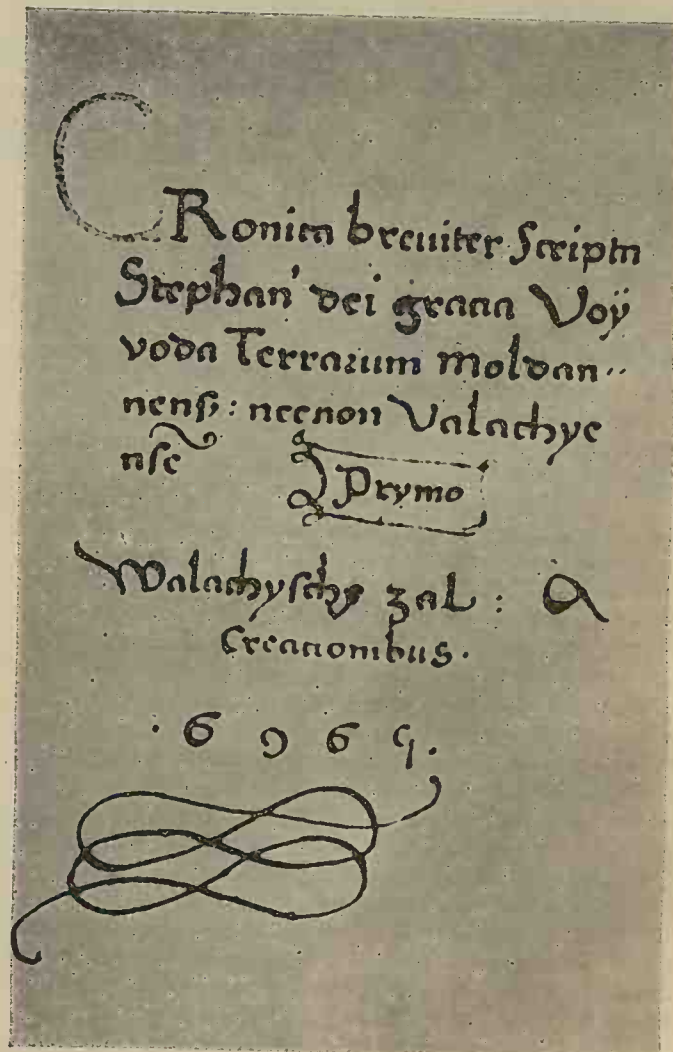 CRonica breuiter Scripta
Stephan' dei gracia Voÿ
voda Terrarum Moldan¨
nens: necnon Valachye
nse Prymo
Walachyschy zal : A
Creacionibus.
. 6 9 6 5 .